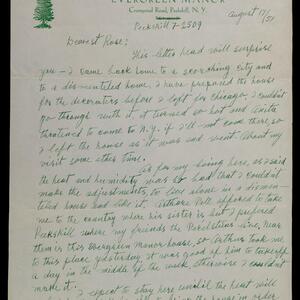 EVERGREEN MANOR
Crompond Road, Peekskill, N. Y.
Peekskill 7-2509
August 17/51
Dearest Rose:
This letter head will surprise
you - I came back home to a scorching city and
to a dismantled home. I have prepared the house
for the decorators before I left for Chicago, I couldn't
go through with it, it turned so hot and
threatened to come to N.Y. if I'll not come there, so
I left the house as it was and went about my
visit some other time.
As for my being here, as I said
the heat and humidity was so bad that I couldn't
make the adjustments, to live alone in a disman-
tled house and like it. Arthur offered to take
me to the country where his sister is but I prefered
Peekskill where my friends the live, near
them is this Evergreen Manor house, so Arthur took me
to this place yesterday, it was good of him to take off
a day in the middle of the week, otherwise I couldn't
make it.
I expect to stay here until the heat will